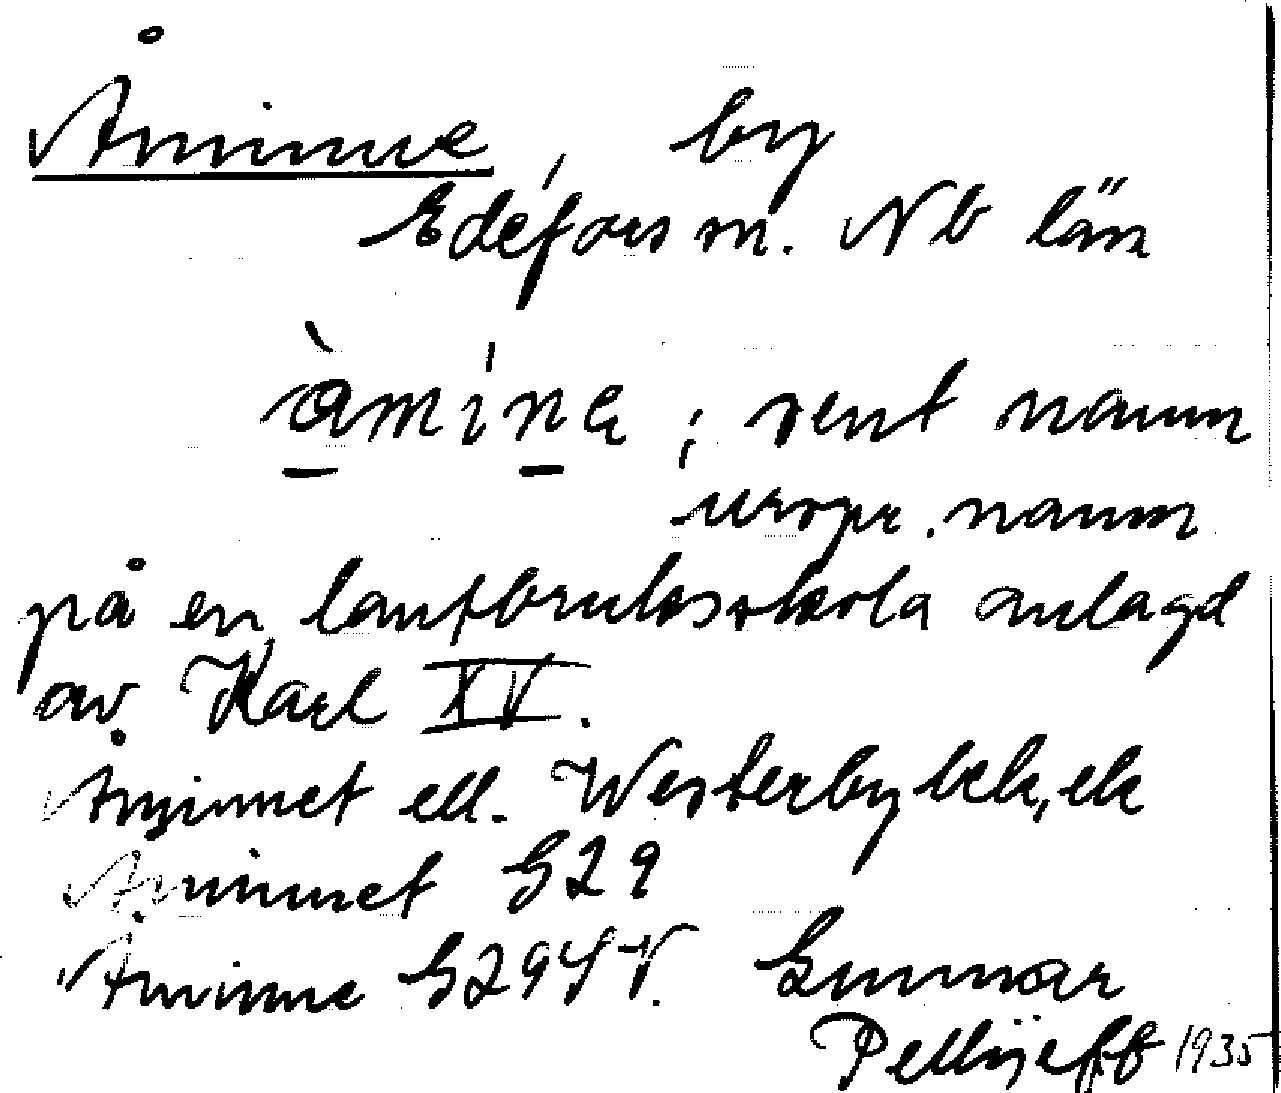 Åminne, by
Edefors sn. Nb län
àmíne; rent namn
urspr. namn
på en lantbruksskola anlagd
av Karl XV.
Åminnet ell. Westerby lek, ek
Åminnet G29
Åminne G29SV. Gunnar
Pellijeff 1935